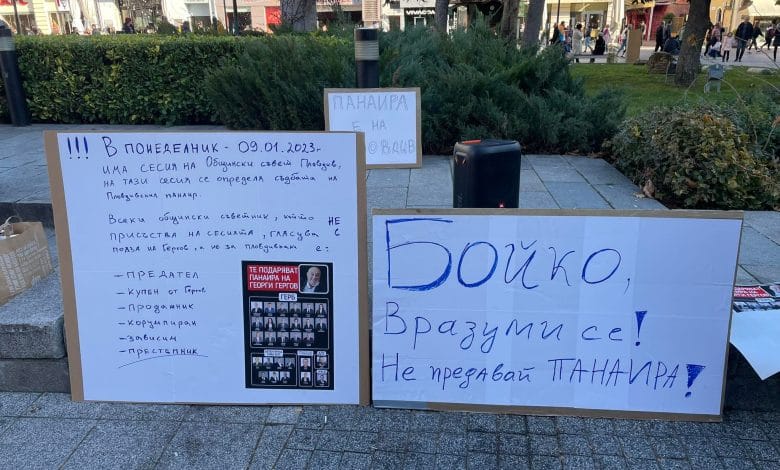 ПАНАИРА
Е НА
!!! В ПОНЕДЕЛНИК - 09.01.2023г
ИМА СЕСИЯ НА Общински съвет Пловдив,
НА ТАЗИ СЕСИЯ СЕ ОПРЕДЕЛЯ СЪДБАТА НА
Пловдивския панаир.
Всеки общински съветник, който НЕ
ПРИСЪСТВА НА СЕСИЯТА, ГЛАСУВА В
ПОЛЗА НА Гергов, А НЕ ЗА ПЛОВДИВЧАНИ
Е:
- ПРЕДАТЕЛ
- КУПЕН ОТ Гергов
- ПРОДАЖНИК
- КОРУМПИРАН
- ЗАВИСИМ
- ПРЕСТЪПНИК
ТЕ ПОДАРЯВАТ
ПАНАИРА НА
ГЕОРГИ ГЕРГОВ
ГЕРБ
БОЙКО,
Вразуми се!
Не предавай ПАНАИРА!